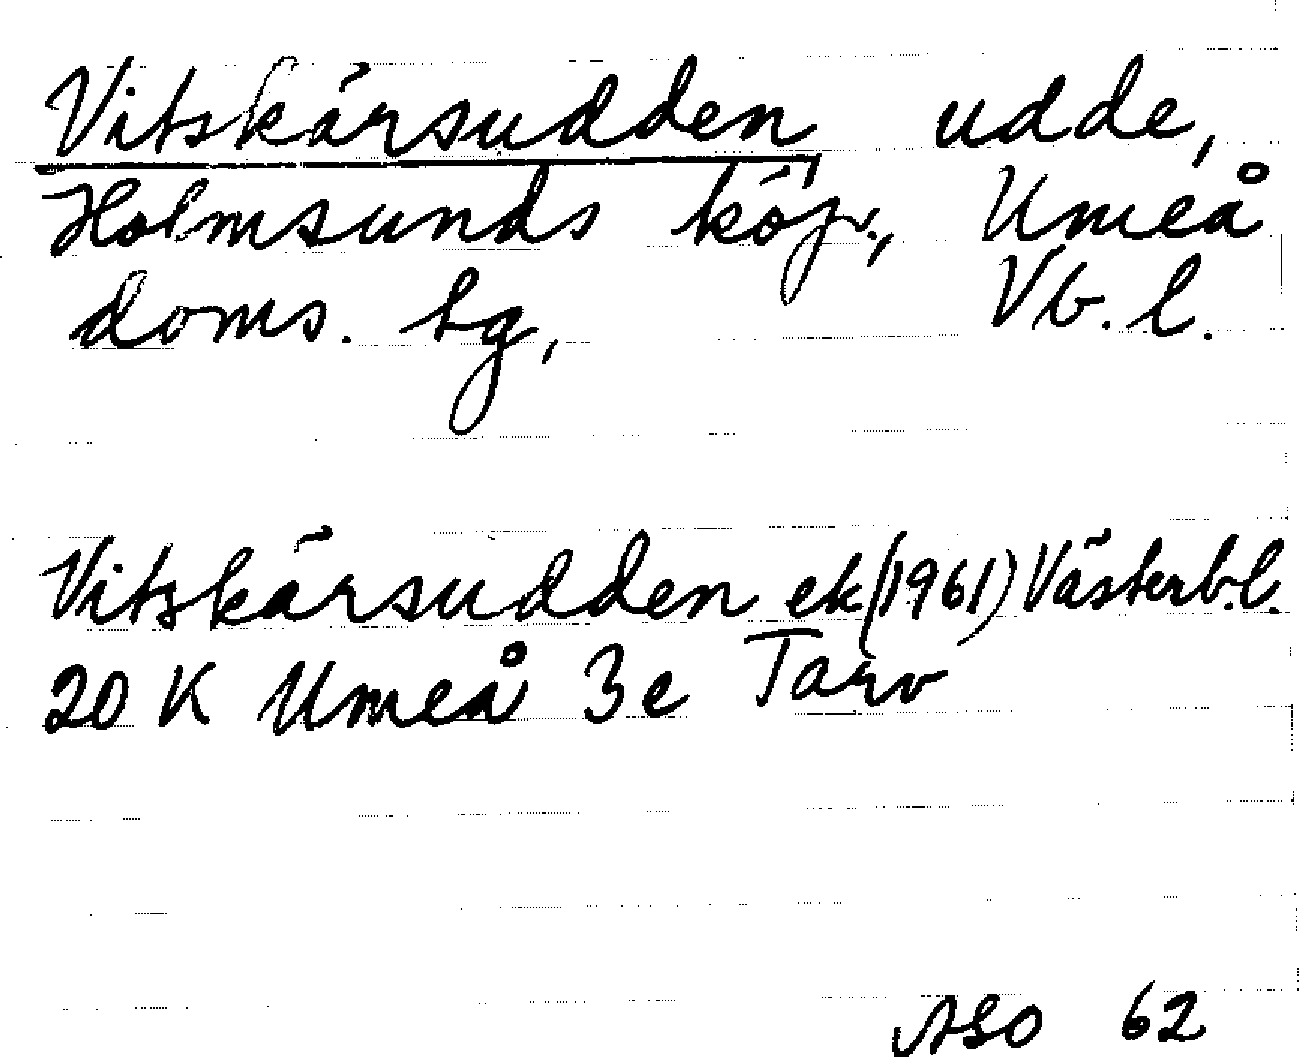 Vitskärsudden udde,
Holmsunds köp., Umeå
doms. sg, Vb. l.
Vitskärsudden ek (1961) Västerb.l.
20 K Umeå 3e Tarv
ASO 62